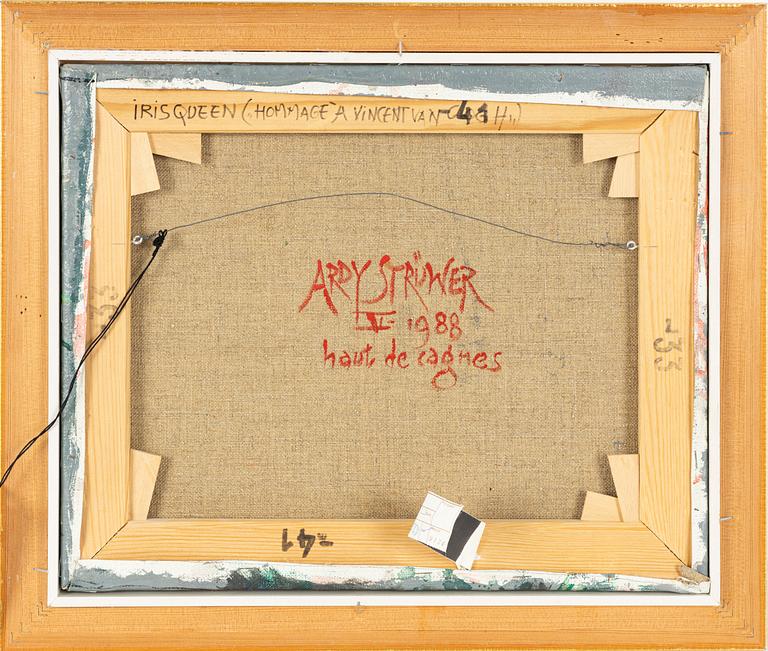 IRISQUEEN („HOMMAGE" A VINCENT VAN
-41
ARDY STRÜWER
IV- 1988
haut de cagnes
-33
-33
-41